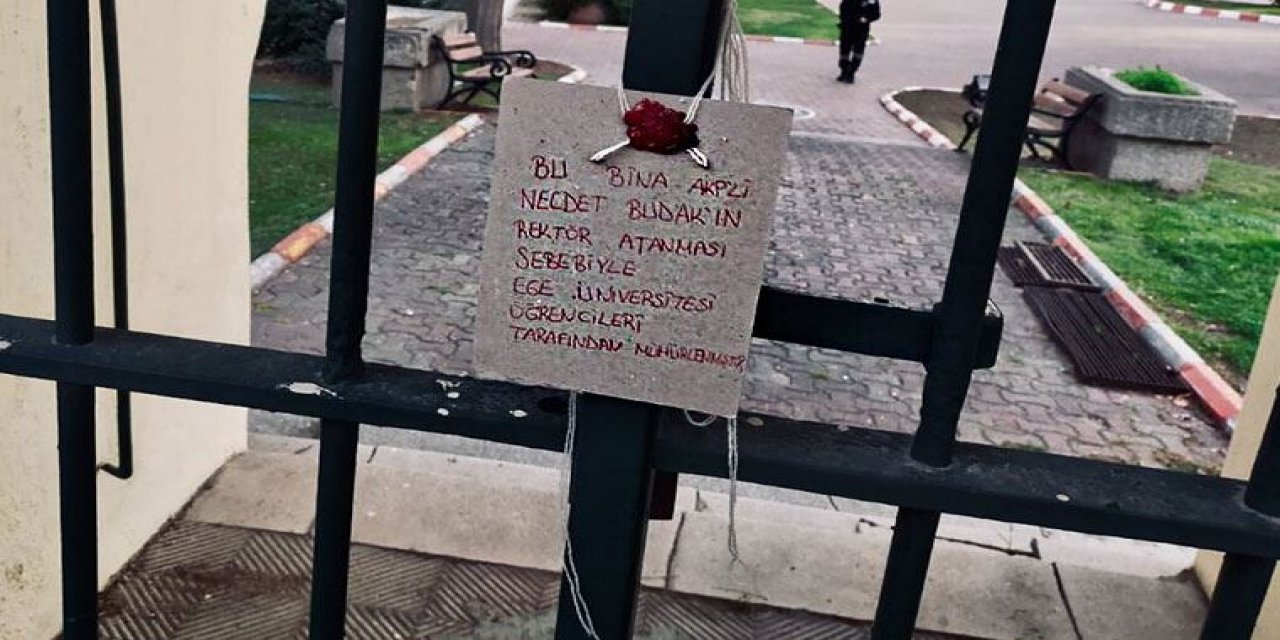 BU BİNA AKP'Lİ
NECDET BUDAK'IN
REKTÖR ATANMASI
SEBEBİYLE
EGE ÜNİVERSİTESİ
ÖĞRENCİLERİ
TARAFINDAN MÜHÜRLENMİŞTİR